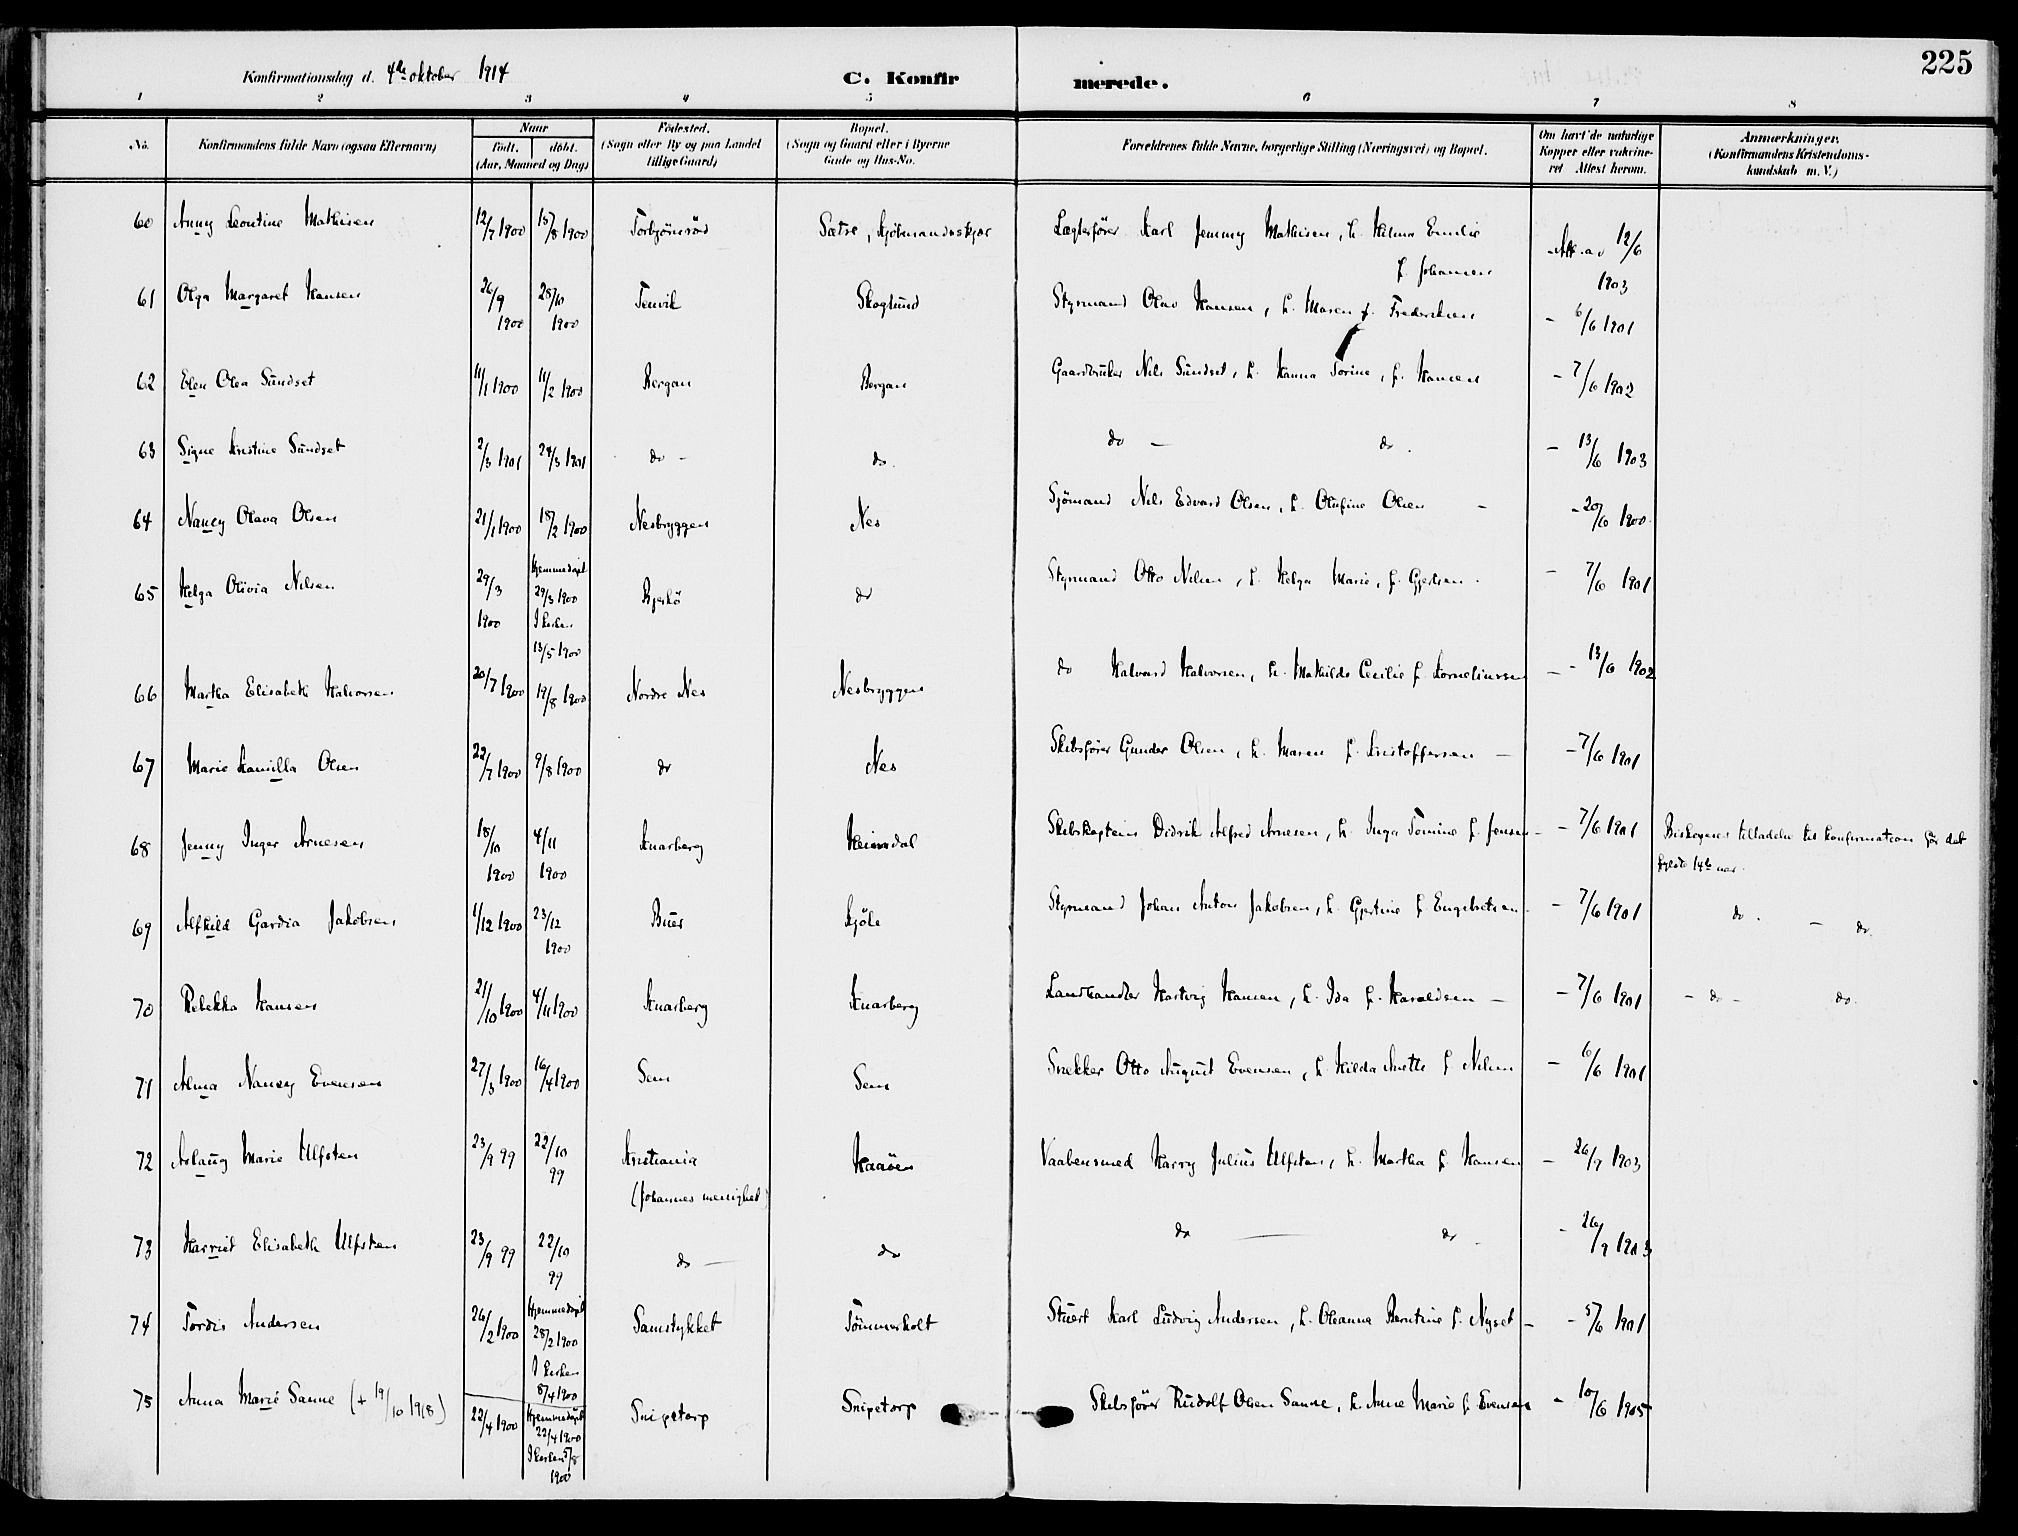 225
Konfirmationsdag d. 4de oktober 1914 C. Konfirmerede.
1 2 3 4 5 6 7 8
No. Konfirmandens fulde Navn (ogsaa Efternavn) Naar født. døbt. (Aar, Maaned og Dag) Fødested. (Sogn eller By og paa Landet tillige Gaard) Bopæl. (Sogn og Gaard eller i Byerne Gade og Hus-No. Forældrenes fulde Navne, borgerlige Stilling (Næringsvei) og Bopæl. Om havt de naturlige Kopper eller vaksineret Attest herom. Anmærkninger. (Konfirmandens Kristendomskundskab m. V.)
60 Anny Leontine Mathisen 12/7 1900 15/8 1900 Torbjörnröd Sætre, Lægterfører Karl Jemmy Mathisen, h. Hilma Emilie f. Johansen Att. av 12/6 1903
61 Olga Margaret Hansen 26/9 1900 28/10 1900 Tenvik Skoglund Styrmand Olav Hansen, h. Maren f. Fredriksen - 6/6 1901
62 Elen Olea Sundset 11/1 1900 11/2 1900 Bergan Bergan Gaardbruker Nils Sundset, h. Hanna Torine, f. Hansen - 7/6 1902
63 Signe Kristine Sundset 2/3 1901 24/3 1901 do - do. do - do. - 13/6 1903
64 Nancy Olava Olsen 21/1 1900 18/2 1900 Nesbryggen Nes Sjömand Nils Edvard Olsen, h. Olufine Olsen - - 20/6 1900.
65 Helga Olivia Nilsen 29/3 1900 Hjemmedøpt 29/3 1900 I kirken 13/5 1900 Bjerkö do Styrmand Otto Nilsen, h. Helga Marie, f. Gjertsen. - 7/6 1901
66 Martha Elisabeth Halvorsen 20/7 1900 19/8 1900 Nordre Nes Nesbryggen do Halvard Halvorsen, h. Mathilde Cecilie f. Korneliussen - - 13/6 1902
67 Marie Kamilla Olsen 22/7 1900 9/8 1900 do Nes Skibsfører Gunder Olsen, h. Maren f. Kristoffersen - - 7/6 1901
68 Jenny Inger Arnesen 18/10 1900 4/11 1900 Knarberg Heimdal Skibskaptein Didrik Alfred Arnesen, h. Inga Tomine f. Jensen - - 7/6 1901 Biskopens tilladelse til konfirmation før det fyldte 14de aar.
69 Alfhild Gardia Jakobsen 1/12 1900 23/12 1900 Buer Kjöle Styrmand Johan Anton Jakobsen, h. Gjertine f. Engebretsen - 7/6 1901 do. - do.
70 Rebekka Hansen 21/10 1900 4/11 1900 Knarberg Knarberg Landhandler Hartvig Hansen, h. Ida f. Haraldsen - - 7/6 1901 - do - do.
71 Alma Nancy Evensen 27/3 1900 16/4 1900 Sem Sem Snekker Otto August Evensen, h. Hilda Anette f. Nilsen - 6/6 1901
72 Aslaug Marie Ulfsten 23/9 99 22/10 99 Kristiania (Johannes menighet) Haaöen Vaabensmed Harry Julius Ulfsten, h. Martha f. Hansen - 26/9 1903
73 Harriet Elisabeth Ulfsten 23/9 99 22/10 99 do - do do - do - - 26/9 1903
74 Tordis Andersen 26/2 1900 Hjemmedøpt 28/2 1900 I kirken 8/4 1900 Samstykket Tömmerholt Stuert Karl Ludvig Andersen, h. Oleanna Berntine f. Nyset - - 5/6 1901
75 Anna Marie Sanne (+ 19/10 1918) 22/4 1900 Hjemmedøpt 22/4 1900 I kirken 5/8 1900 Snipetorp Snipetorp Skibsfører Rudolf Olsen Sanne, h. Anne Marie f. Evensen - 10/6 1905